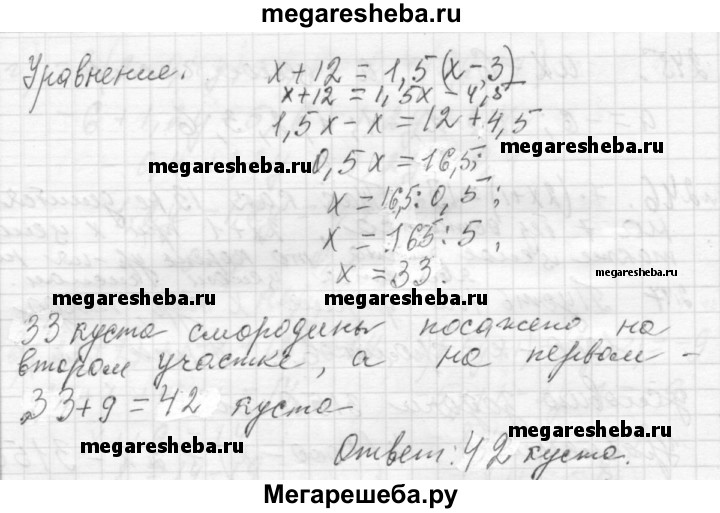 megaresheba.ru
Уравнение: x+12 = 1,5(x-3)
x+12 = 1,5x - 4,5
1,5x - x = 12 + 4,5
megaresheba.ru 0,5x = 16,5; megaresheba.ru
x = 16,5 : 0,5;
x = 165 : 5;
x = 33. megaresheba.ru
megaresheba.ru megaresheba.ru
33 куста смородины посажено на
втором участке, а на первом -
33+9 = 42 куста
megaresheba.ru Ответ: 42 куста. megaresheba.ru
Мегарешеба.ру